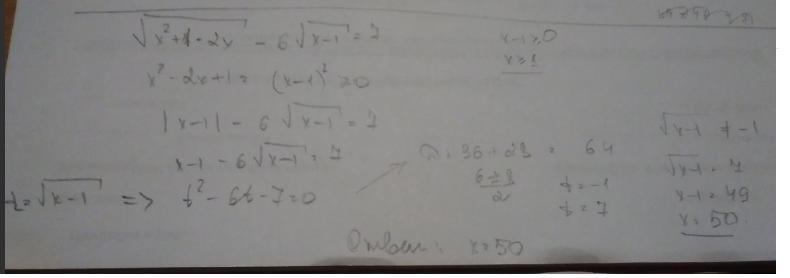 √(x²+1-2x) - 6√(x-1) = 7
x-1≥0
x≥1
x²-2x+1 = (x-1)² ≥0
|x-1| - 6√(x-1) = 7
x-1-6√(x-1) = 7
t=√(x-1) => t²-6t-7=0
D=36+28 = 64
(6±8)/2
t=-1
t=7
√(x-1) ≠ -1
√(x-1) = 7
x-1=49
x=50
Ответ: x=50